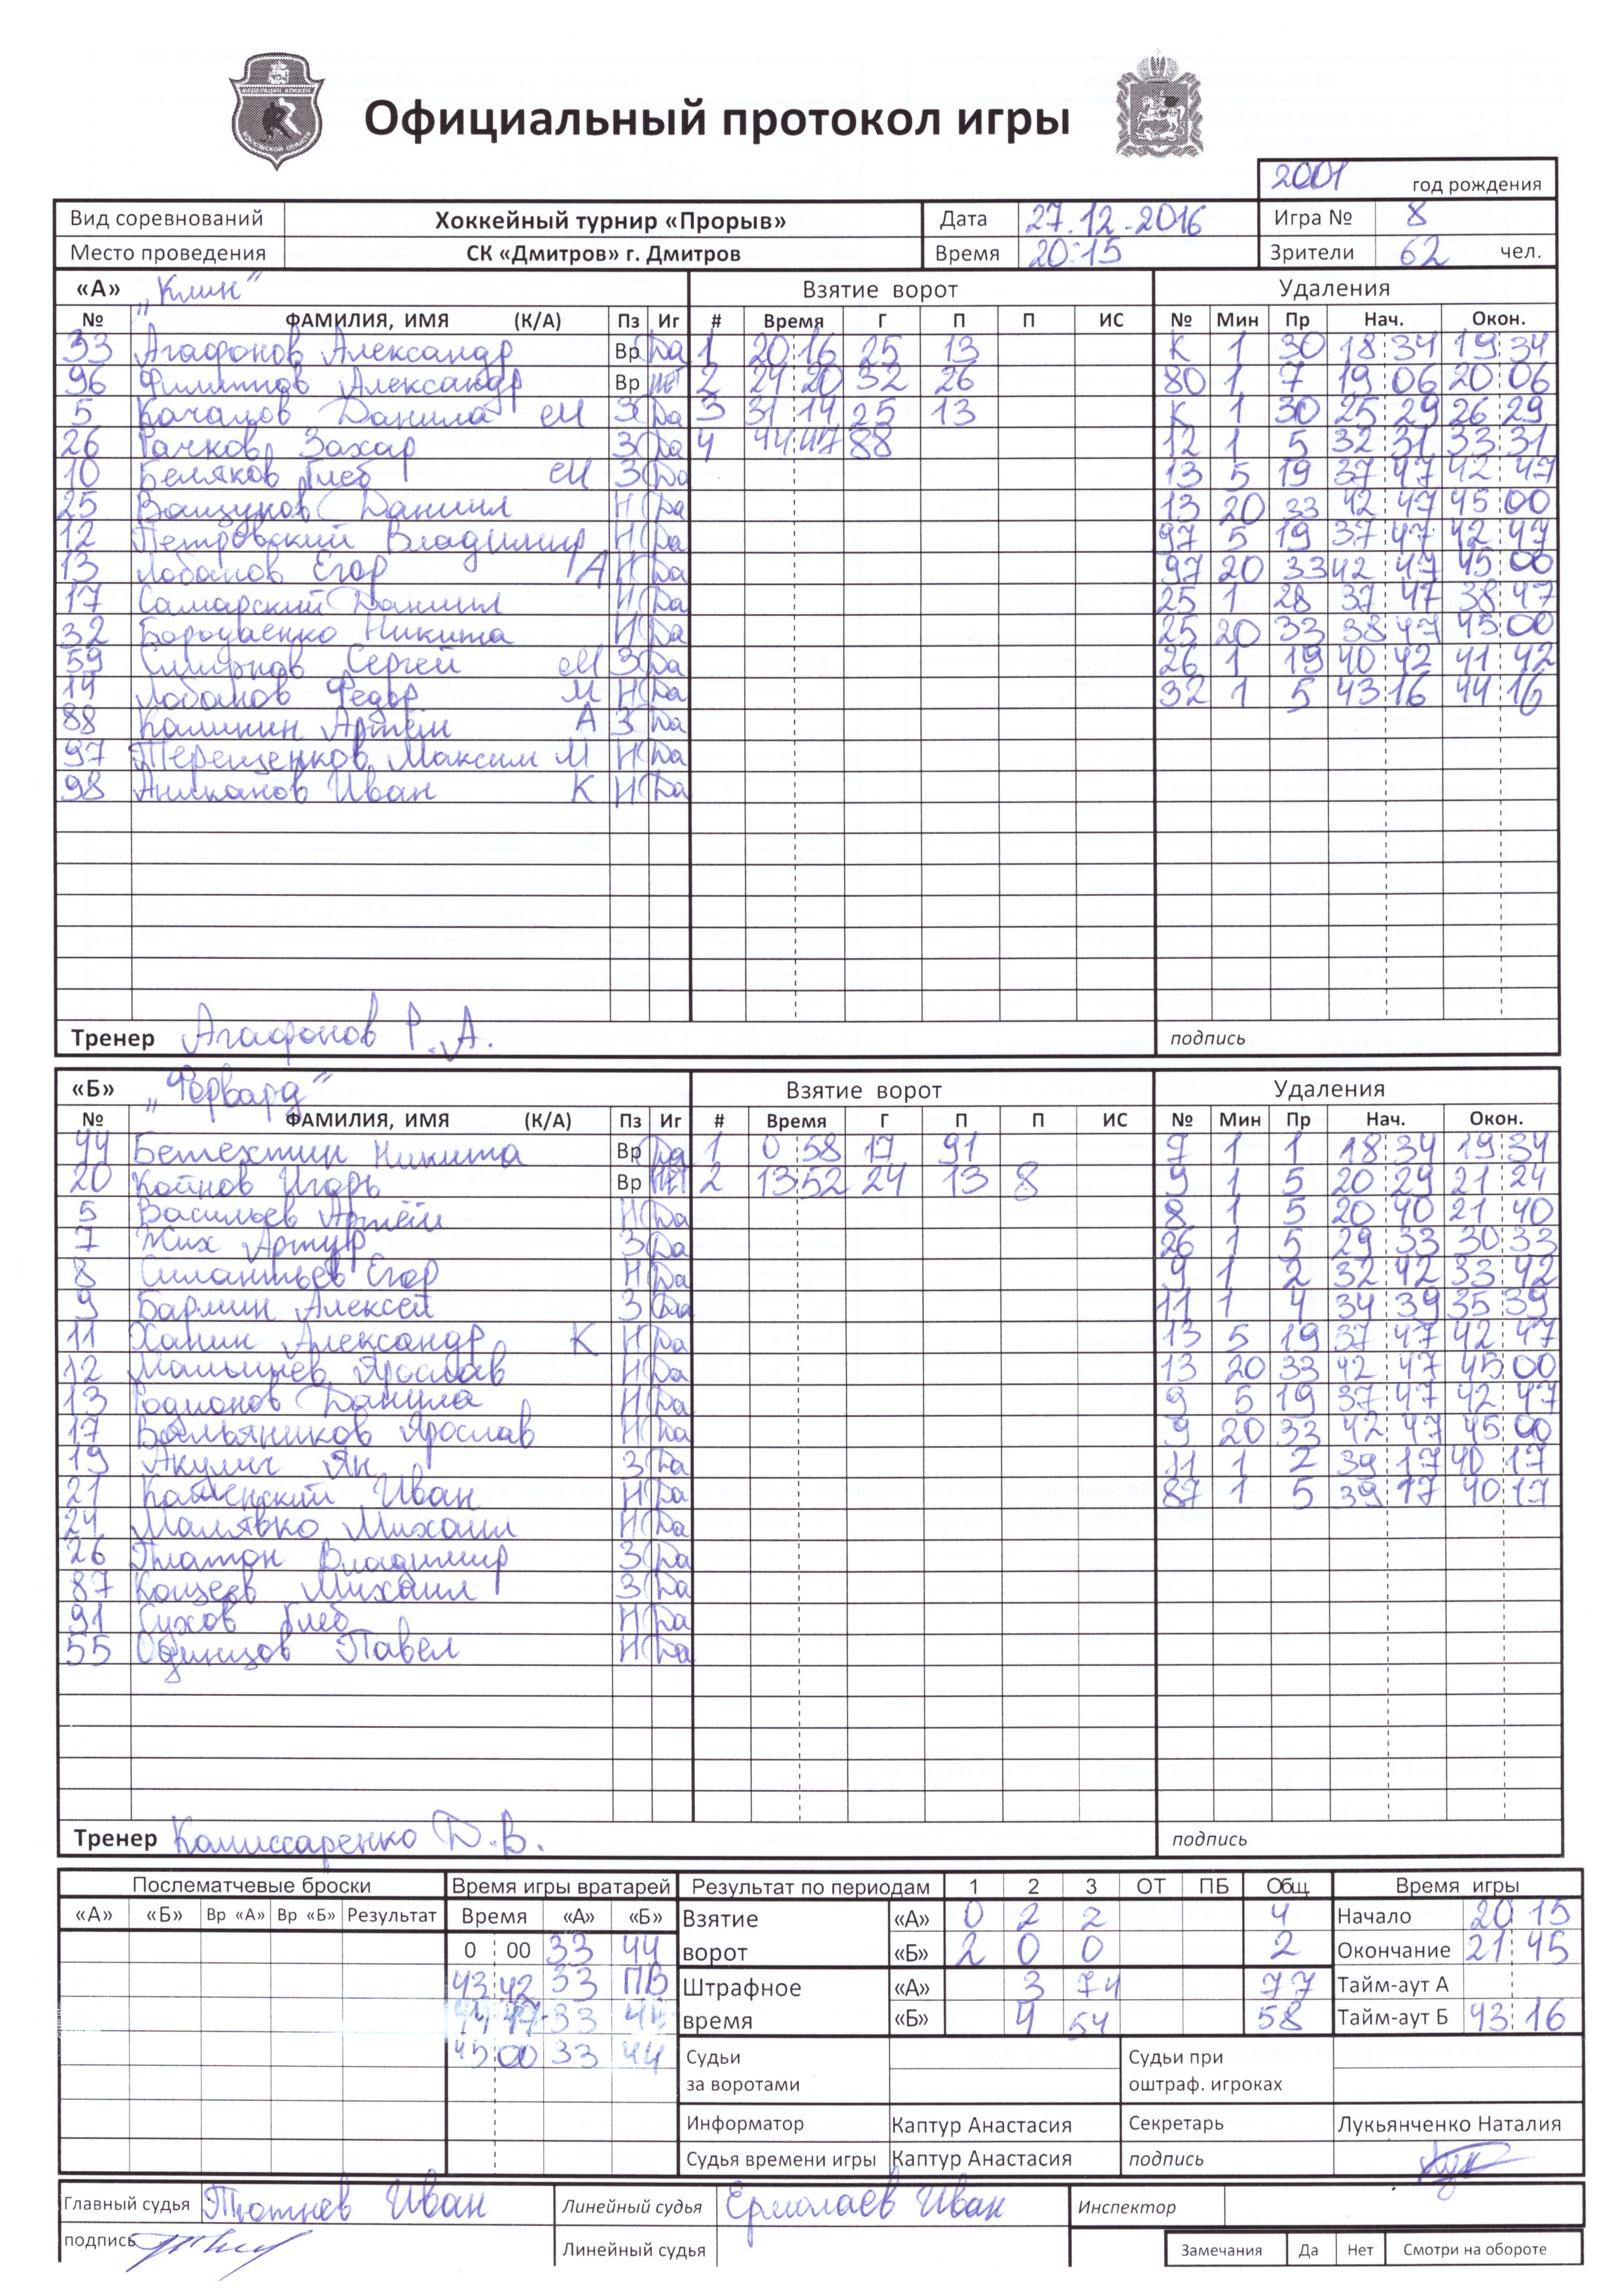 Официальный протокол игры
2001 год рождения
Вид соревнований Хоккейный турнир «Прорыв» Дата 27.12.2016 Игра № 8
Место проведения СК «Дмитров» г. Дмитров Время 20:15 Зрители 62 чел.
«А» "Клин" Взятие ворот Удаления
№ ФАМИЛИЯ, ИМЯ (К/А) Пз Иг # Время Г П П ИС № Мин Пр Нач. Окон.
33 Агафонов Александр Вр Да 1 20 16 25 13 К 1 30 18 34 19 34
96 Филиппов Александр Вр нет 2 24 20 32 26 80 1 7 19 06 20 06
5 Качалов Данила З Да 3 31 14 25 13 К 1 30 25 29 26 29
26 Рачков Захар З Да 4 44 47 88 12 1 5 32 31 33 31
10 Беляков Глеб З Да 13 5 19 37 47 42 47
25 Ващуков Даниил Н Да 13 20 33 42 47 45 00
12 Петровский Владимир Н Да 97 5 19 37 47 42 47
13 Лобанов Егор А Н Да 97 20 33 42 47 45 00
17 Самарский Даниил Н Да 25 1 28 37 47 38 47
32 Бородаенко Никита Н Да 25 20 33 38 47 45 00
59 Смирнов Сергей З Да 26 1 19 40 42 41 42
14 Лобанов Федор М Н Да 32 1 5 43 16 44 16
88 Калинин Артём А З Да
97 Терещенков Максим М Н Да
98 Аниканов Иван К Н Да
Тренер Агафонов Р.А. подпись
«Б» "Форвард" Взятие ворот Удаления
№ ФАМИЛИЯ, ИМЯ (К/А) Пз Иг # Время Г П П ИС № Мин Пр Нач. Окон.
44 Бетехтин Никита Вр Да 1 0 58 17 91 7 1 1 18 34 19 34
20 Койнов Игорь Вр нет 2 13 52 24 13 8 9 1 5 20 29 21 24
5 Васильев Артём Н Да 8 1 5 20 40 21 40
7 Жих Артур З Да 26 1 5 29 33 30 33
8 Силантьев Егор Н Да 9 1 2 32 42 33 42
9 Бармин Алексей З Да 11 1 4 34 39 35 39
11 Ханин Александр К Н Да 13 5 19 37 47 42 47
12 Ярослав Н Да 13 20 33 42 47 45 00
13 Родионов Данила Н Да 9 5 19 37 47 42 47
17 Ярослав Н Да 9 20 33 42 47 45 00
19 Акулич Ян З Да 11 1 2 39 17 40 17
21 Каменский Иван Н Да 87 1 5 39 17 40 17
24 Малявко Михаил Н Да
26 Платон Владимир З Да
87 Кощеев Михаил З Да
91 Сухов Глеб Н Да
55 Одинцов Павел Н Да
Тренер Комиссаренко Д.В. подпись
Послематчевые броски Время игры вратарей Результат по периодам 1 2 3 ОТ ПБ Общ Время игры
«А» «Б» Вр «А» Вр «Б» Результат Время «А» «Б» Взятие ворот «А» 0 2 2 4 Начало 20 15
0 00 33 44 «Б» 2 0 0 2 Окончание 21 45
43 42 33 ПВ Штрафное время «А» 3 74 77 Тайм-аут А
44 47 33 44 «Б» 4 54 58 Тайм-аут Б 43 16
45 00 33 44 Судьи за воротами Судьи при оштраф. игроках
Информатор Каптур Анастасия Секретарь Лукьянченко Наталия
Судья времени игры Каптур Анастасия подпись
Главный судья Иван Линейный судья Ермолаев Иван Инспектор
подпись Линейный судья Замечания Да Нет Смотри на обороте